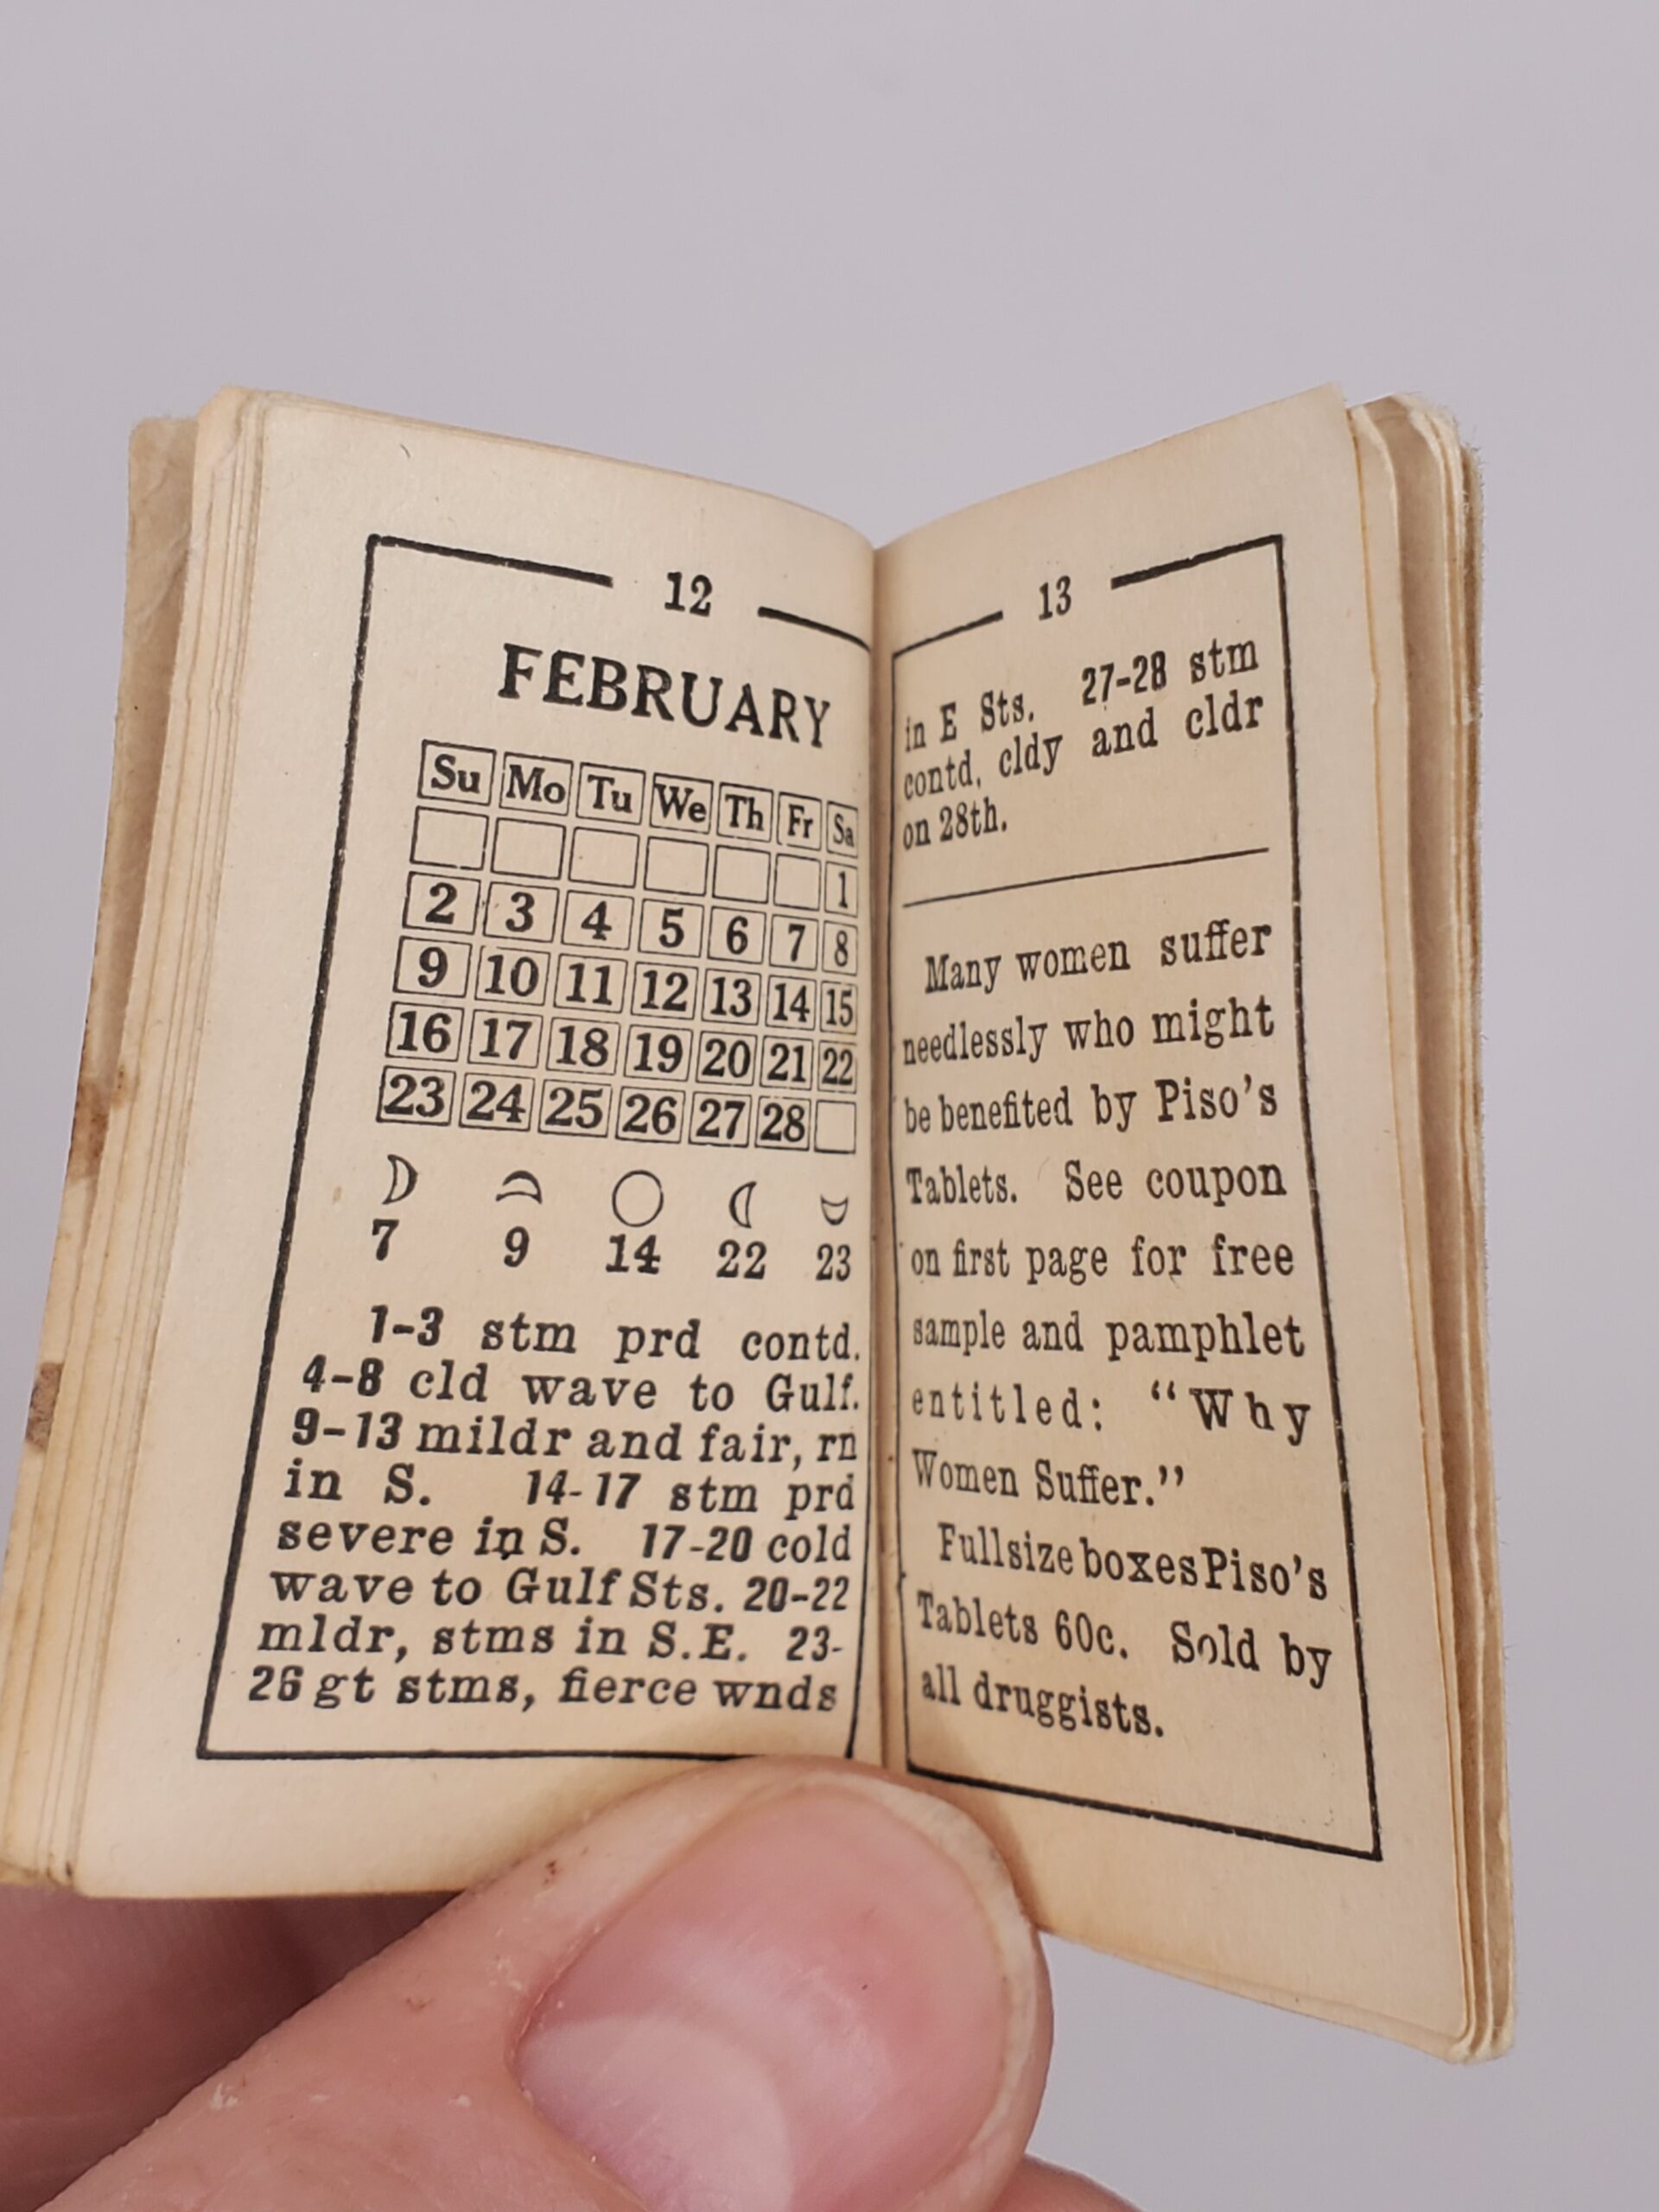 12
FEBRUARY
Su Mo Tu We Th Fr Sa
1
2 3 4 5 6 7 8
9 10 11 12 13 14 15
16 17 18 19 20 21 22
23 24 25 26 27 28
7 9 14 22 23
1-3 stm prd contd.
4-8 cld wave to Gulf.
9-13 mildr and fair, rn
in S. 14-17 stm prd
severe in S. 17-20 cold
wave to Gulf Sts. 20-22
mldr, stms in S.E. 23-
26 gt stms, fierce wnds
13
in E Sts. 27-28 stm
contd, cldy and cldr
on 28th.
Many women suffer
needlessly who might
be benefited by Piso's
Tablets. See coupon
on first page for free
sample and pamphlet
entitled: "Why
Women Suffer."
Full size boxes Piso's
Tablets 60c. Sold by
all druggists.